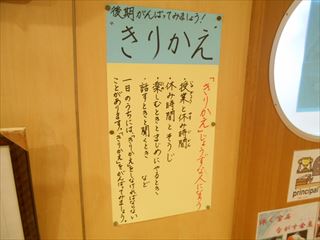 後期がんばってみましょう!
"きりかえ"
「きりかえ」じょうずな人になろう
・授業と休み時間
・休み時間とそうじ
・楽しむときとまじめにやるとき
・話すときと聞くとき など
一日のうちには、「きりかえ」をしなければならない
ことがあります。「きりかえ」をがんばってみましょう。
principal